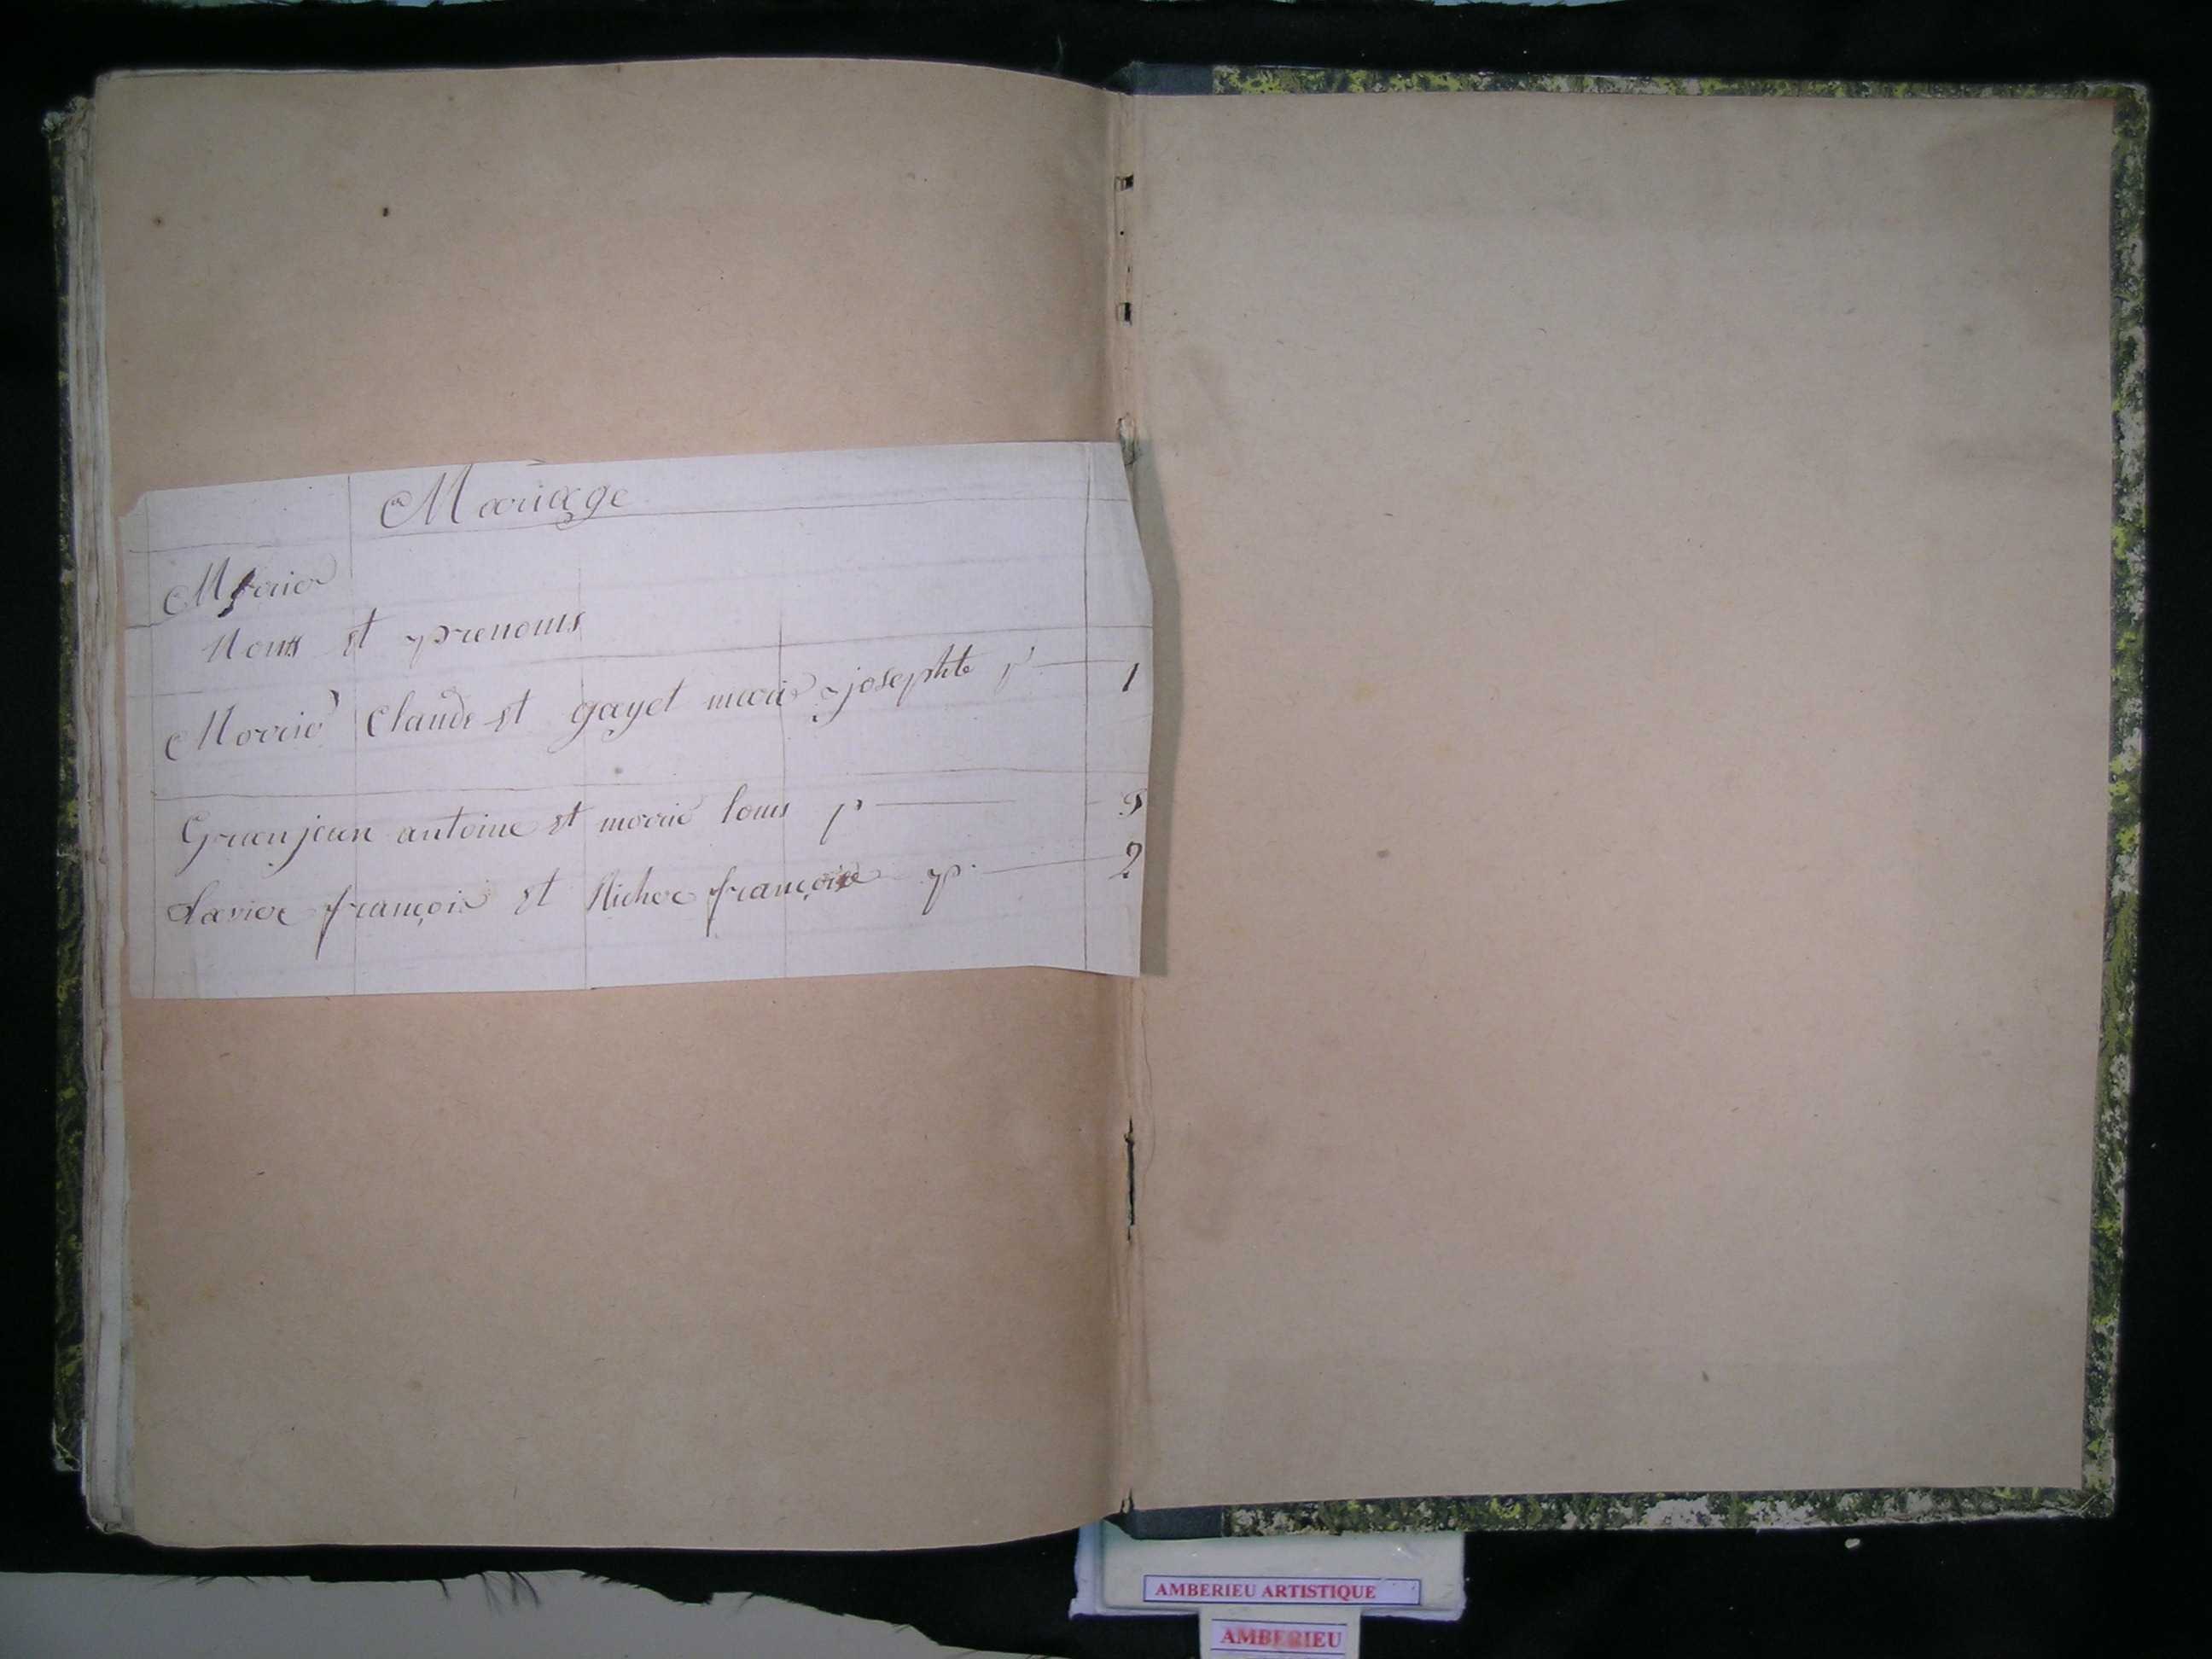 Mariage
Noms et prenoms
Morrié Claude et gayet marie josephte p 1
Granjean antoine et morrie louis p
Lavier françois et Richer françoise p. 2
AMBERIEU ARTISTIQUE
AMBERIEU